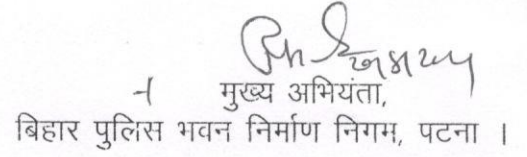 मुख्य अभियंता,
बिहार पुलिस भवन निर्माण निगम, पटना ।